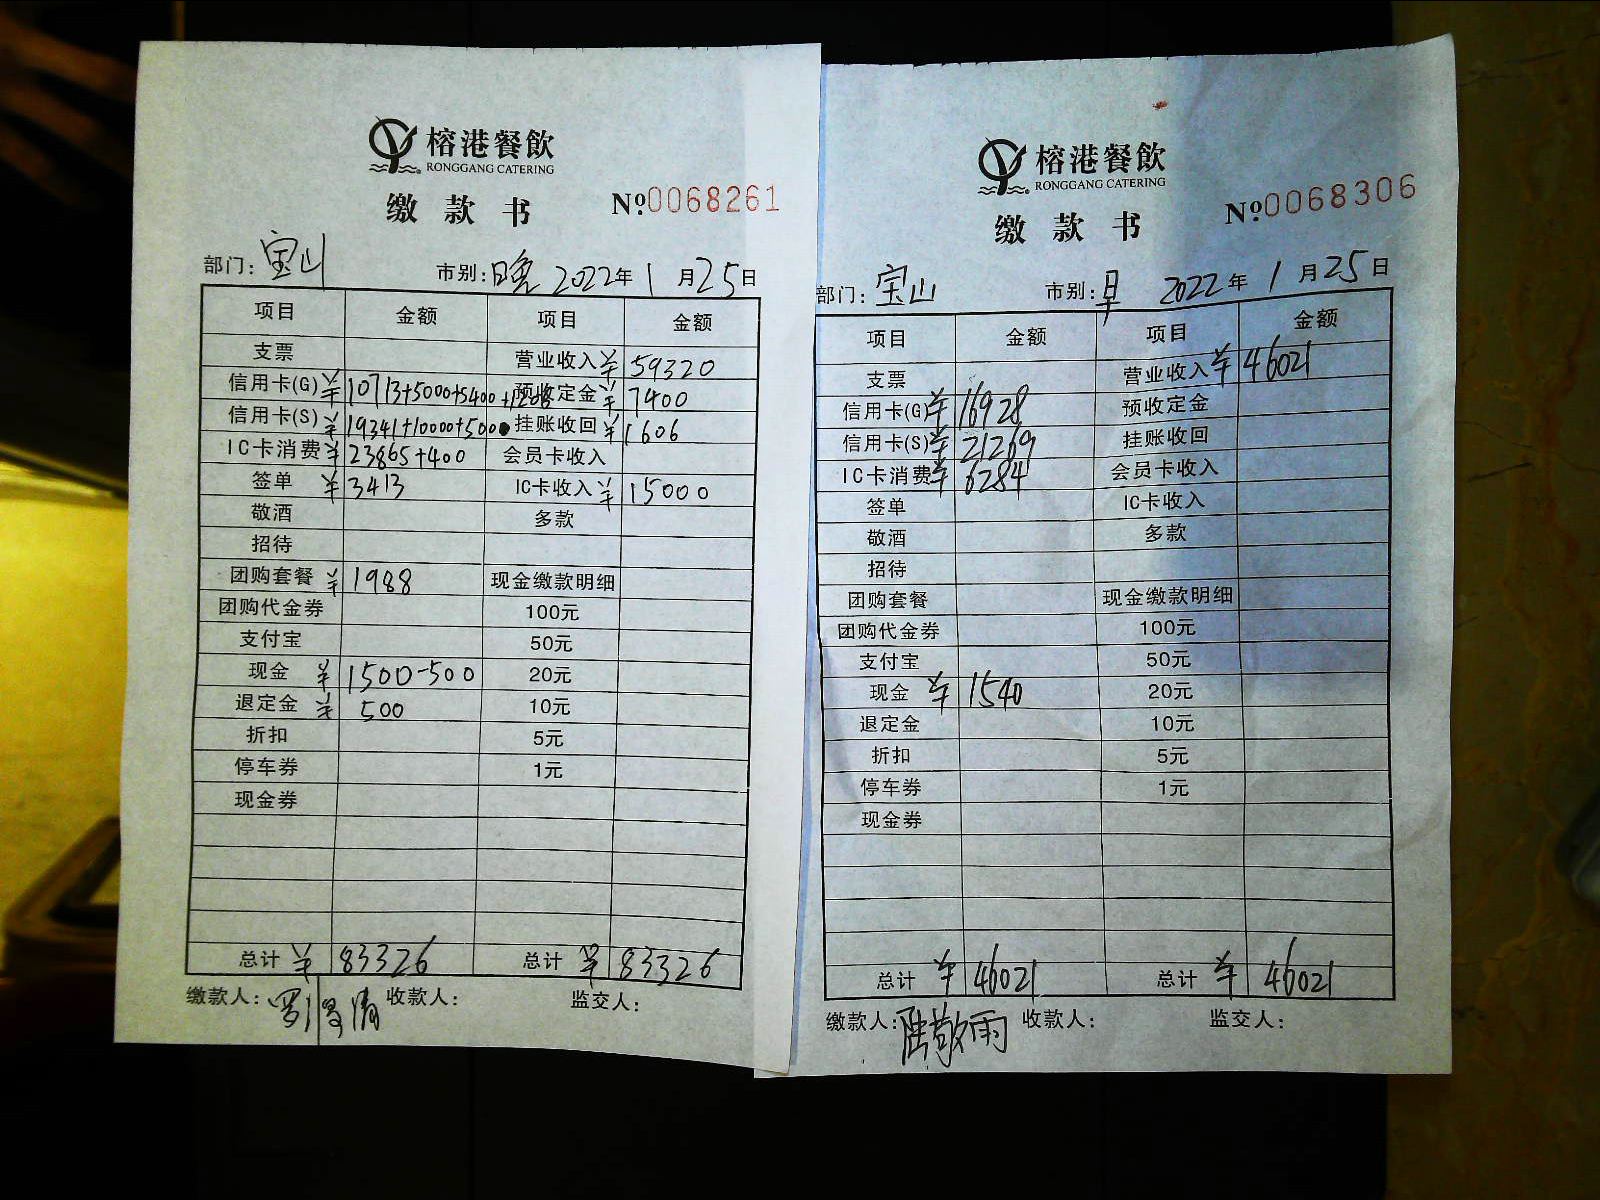 榕港餐飲
RONGGANG CATERING
缴款书 №0068261
部门: 宝山 市别: 晚 2022年1月25日
项目 金额 项目 金额
支票 营业收入 ¥ 59320
信用卡(G) ¥ 10713+5000+5400+1206 预收定金 ¥ 7400
信用卡(S) ¥ 19341+10000+5000 挂账收回 ¥ 1606
IC卡消费 ¥ 23865+400 会员卡收入
签单 ¥ 3413 IC卡收入 ¥ 15000
敬酒 多款
招待
团购套餐 ¥ 1988 现金缴款明细
团购代金券 100元
支付宝 50元
现金 ¥ 1500-500 20元
退定金 ¥ 500 10元
折扣 5元
停车券 1元
现金券
总计 ¥ 83326 总计 ¥ 83326
缴款人: 收款人: 监交人:
榕港餐飲
RONGGANG CATERING
缴款书 №0068306
部门: 宝山 市别: 早 2022年1月25日
项目 金额 项目 金额
支票 营业收入 ¥ 46021
信用卡(G) ¥ 16928 预收定金
信用卡(S) ¥ 21269 挂账收回
IC卡消费 ¥ 6284 会员卡收入
签单 IC卡收入
敬酒 多款
招待
团购套餐 现金缴款明细
团购代金券 100元
支付宝 50元
现金 ¥ 1540 20元
退定金 10元
折扣 5元
停车券 1元
现金券
总计 ¥ 46021 总计 ¥ 46021
缴款人: 陆敬雨 收款人: 监交人: